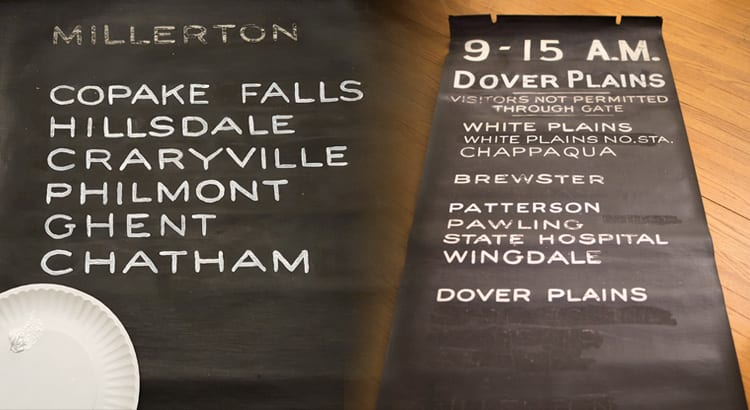 MILLERTON
COPAKE FALLS
HILLSDALE
CRARYVILLE
PHILMONT
GHENT
CHATHAM
9-15 A.M.
DOVER PLAINS
VISITORS NOT PERMITTED
THROUGH GATE
WHITE PLAINS
WHITE PLAINS NO. STA.
CHAPPAQUA
BREWSTER
PATTERSON
PAWLING
STATE HOSPITAL
WINGDALE
DOVER PLAINS